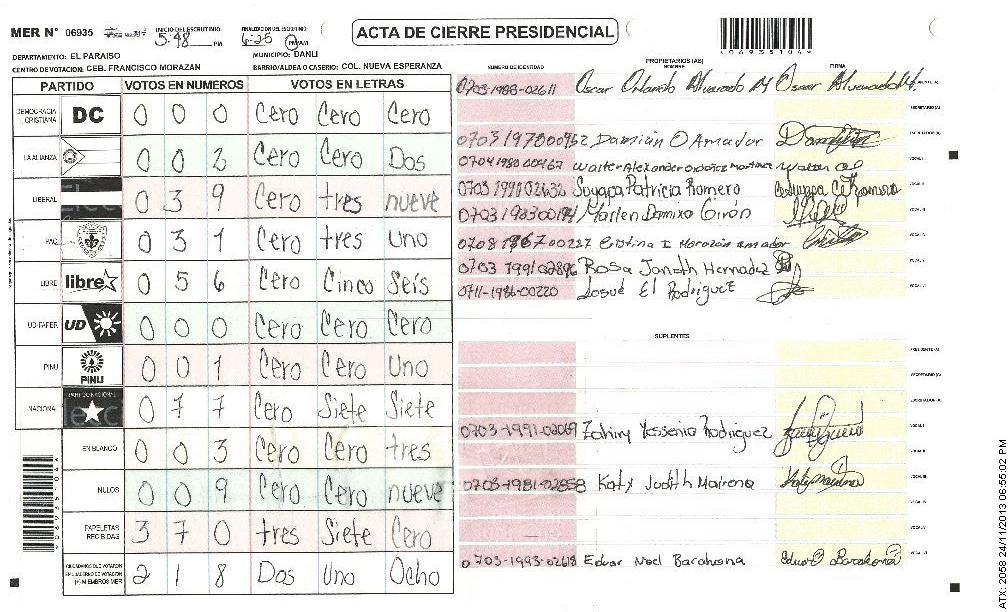 MER N° 06935 INICIO DEL ESCRUTINIO: 5:48 PM FINALIZACION DEL ESCRUTINIO: 6:25 PM
ACTA DE CIERRE PRESIDENCIAL
DEPARTAMENTO: EL PARAISO MUNICIPIO: DANLI
CENTRO DE VOTACION: CEB. FRANCISCO MORAZAN BARRIO/ALDEA O CASERIO: COL. NUEVA ESPERANZA
PARTIDO VOTOS EN NUMEROS VOTOS EN LETRAS
DEMOCRACIA CRISTIANA DC 0 0 0 Cero Cero Cero
LA ALIANZA 0 0 2 Cero Cero Dos
LIBERAL 0 3 9 Cero tres nueve
PAC 0 3 1 Cero tres Uno
LIBRE libre 0 5 6 Cero Cinco Seis
UD-FAPER UD 0 0 0 Cero Cero Cero
PINU PINU 0 0 1 Cero Cero Uno
NACIONAL PARTIDO NACIONAL 0 7 7 Cero Siete Siete
EN BLANCO 0 0 3 Cero Cero tres
NULOS 0 0 9 Cero Cero nueve
PAPELETAS RECIBIDAS 3 7 0 tres Siete Cero
CIUDADANOS QUE VOTARON EN CUADERNO DE VOTACION (+) MIEMBROS MER 2 1 8 Dos Uno Ocho
PROPIETARIOS (AS)
NUMERO DE IDENTIDAD NOMBRE FIRMA
0703-1988-02611 Oscar Orlando Alvarado M Oscar Alvarado M.
SECRETARIO (A)
0703197000962 Damián O Amador
0704198000467 Walter Alexander Ordoñez Martinez
0703199102632 Suyapa Patricia Romero
Marlen Damixa Girón
0708196700227 Cristina I Morazán amador
0703199102896 Rosa Janeth Hernadez
0711-1986-00220 Josué El Rodriguez
SUPLENTES
PRESIDENTE (A)
SECRETARIO (A)
ESCRUTADOR (A)
0703-1991-02069 Zahiry Yessenia Rodriguez VOCAL I
VOCAL II
0703-1981-02858 Katy Judith Mairena VOCAL III
VOCAL IV
VOCAL V
0703-1993-02618 Edvar Noel Barahona VOCAL VI
ATX: 2058 24/11/2013 06:55:02 PM